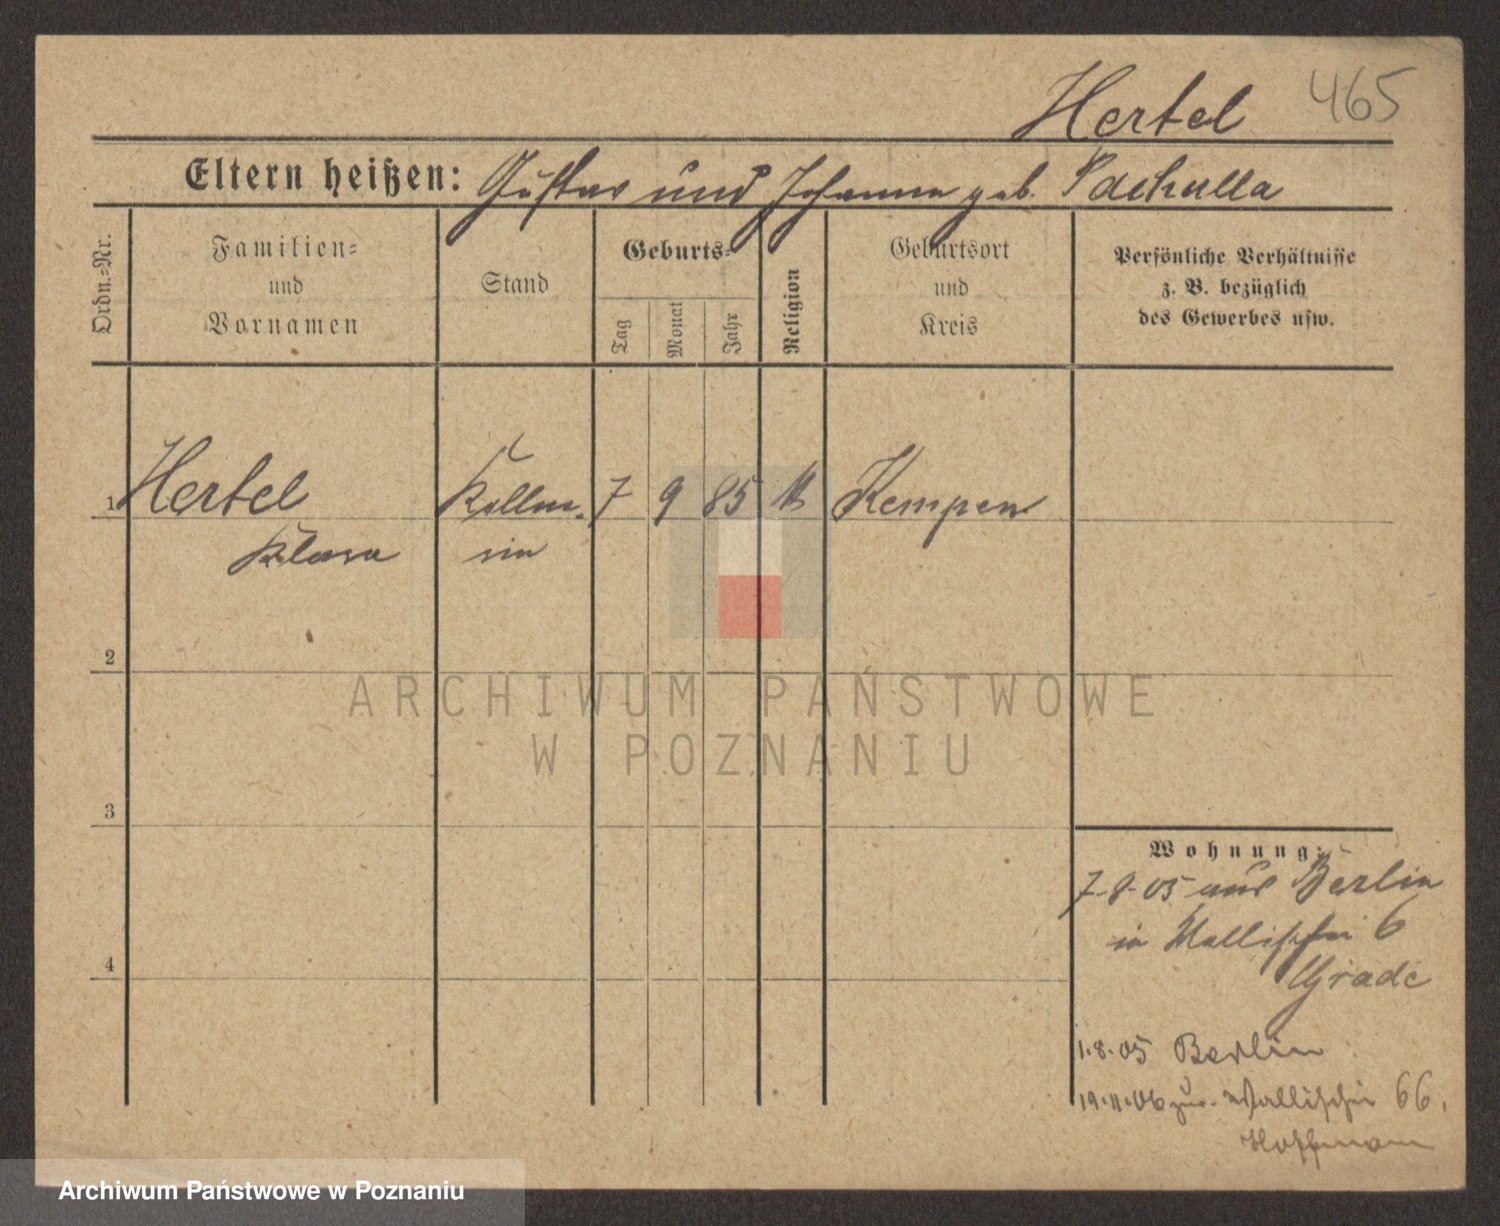 Hertel 465
Eltern heißen: Gustav und Johanna geb. Pachulla
Ordn.=Nr.
Familien=
und
Vornamen
Stand
Geburts=
Tag
Monat
Jahr
Religion
Geburtsort
und
Kreis
Persönliche Verhältnisse
z. B. bezüglich
des Gewerbes usw.
1 Hertel Kellne- 7 9 85 k Kempen
Klara rin
2
ARCHIWUM PAŃSTWOWE
W POZNANIU
3
Wohnung:
7.8.05 aus Berlin
in Wallischei 6
4
Grade
1.8.05 Berlin
19.11.06 zur. Wallischei 66.
Hoffmann
Archiwum Państwowe w Poznaniu